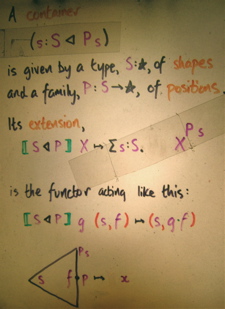 A container
(s:S ◁ Ps)
is given by a type, S:★, of shapes
and a family, P:S→★, of positions.
Its extension,
⟦S◁P⟧ X ↦ Σs:S. X^Ps
is the functor acting like this:
⟦S◁P⟧ g (s,f) ↦ (s,g·f)
Ps
s f p ↦ x